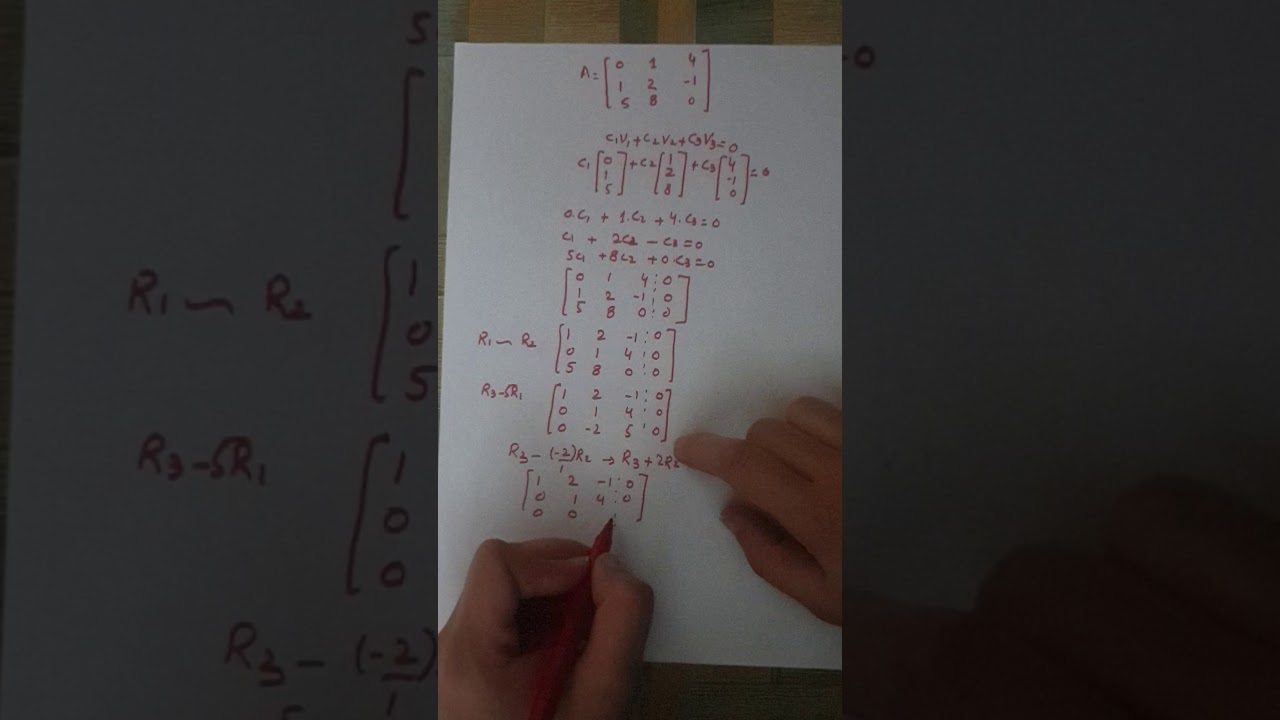 A = [ 0 1 4
1 2 -1
5 8 0 ]
C1V1 + C2V2 + C3V3 = 0
C1 [ 0 1 5 ] + C2 [ 1 2 8 ] + C3 [ 4 -1 0 ] = 0
0.C1 + 1.C2 + 4.C3 = 0
C1 + 2C2 - C3 = 0
5C1 + 8C2 + 0.C3 = 0
[ 0 1 4 : 0
1 2 -1 : 0
5 8 0 : 0 ]
R1 ~ R2 [ 1 2 -1 : 0
0 1 4 : 0
5 8 0 : 0 ]
R3-5R1 [ 1 2 -1 : 0
0 1 4 : 0
0 -2 5 : 0 ]
R3 - (-2)/1 R2 → R3 + 2R2
[ 1 2 -1 : 0
0 1 4 : 0
0 0 : ]